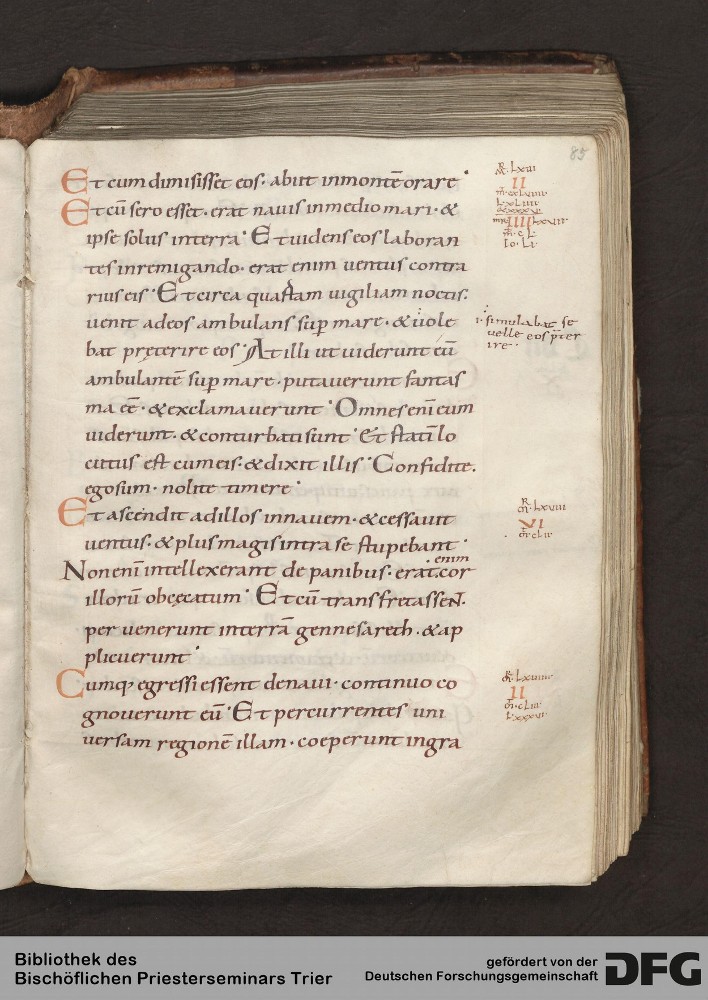 85
Et cum dimisisset eos· abiit inmontē orare·
Et cū sero esset· erat nauis inmedio mari· &
ipse solus interra· Et uidens eos laboran
tes inremigando· erat enim uentus contra
rius eis· Et circa quartam uigiliam noctis·
uenit adeos ambulans sup̄ mare· & uole
bat pręterire eos· At illi ut uiderunt eū
ambulantē sup̄ mare· putauerunt fantas
ma eē· & exclamauerunt· Omnes enī eum
uiderunt· & conturbati sunt· Et statī lo
cutus est cum eis· & dixit illis· Confidite·
ego sum· nolite timere·
Et ascendit adillos innauem· & cessauit
uentus· & plus magis intra se stupebant·
enim
Non enī intellexerant de panibus· erat cor
illorū obcęcatum· Et cū transfretassent·
peruenerunt interrā gennesareth· & ap
plicuerunt·
Cumq; egressi essent denaui· continuo co
gnouerunt eū· Et percurrentes uni
uersam regionē illam· coeperunt ingra
II
·i· simulabat se
uelle eos p̄ter
ire·
VI
II
Bibliothek des
Bischöflichen Priesterseminars Trier
gefördert von der
Deutschen Forschungsgemeinschaft
DFG